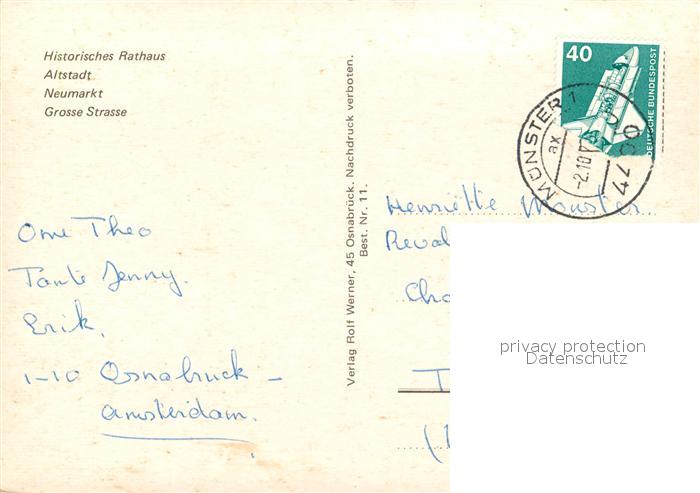 Historisches Rathaus
Altstadt
Neumarkt
Grosse Strasse
Ome Theo
Tante Jenny.
Erik.
1-10 Osnabruck -
Amsterdam.
Verlag Rolf Werner, 45 Osnabrück. Nachdruck verboten.
Best. Nr. 11.
40
DEUTSCHE BUNDESPOST
MÜNSTER 1
ax
-2.10
4400
Henriëtte Monster
privacy protection
Datenschutz